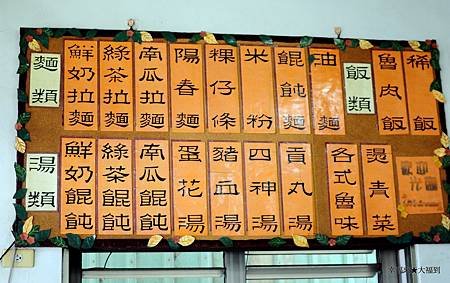 麵類
鮮奶拉麵
綠茶拉麵
南瓜拉麵
陽春麵
粿仔條
米粉
餛飩麵
油麵
飯類
魯肉飯
稀飯
湯類
鮮奶餛飩
綠茶餛飩
南瓜餛飩
蛋花湯
豬血湯
四神湯
貢丸湯
各式魯味
燙青菜
歡迎
光臨
大福到